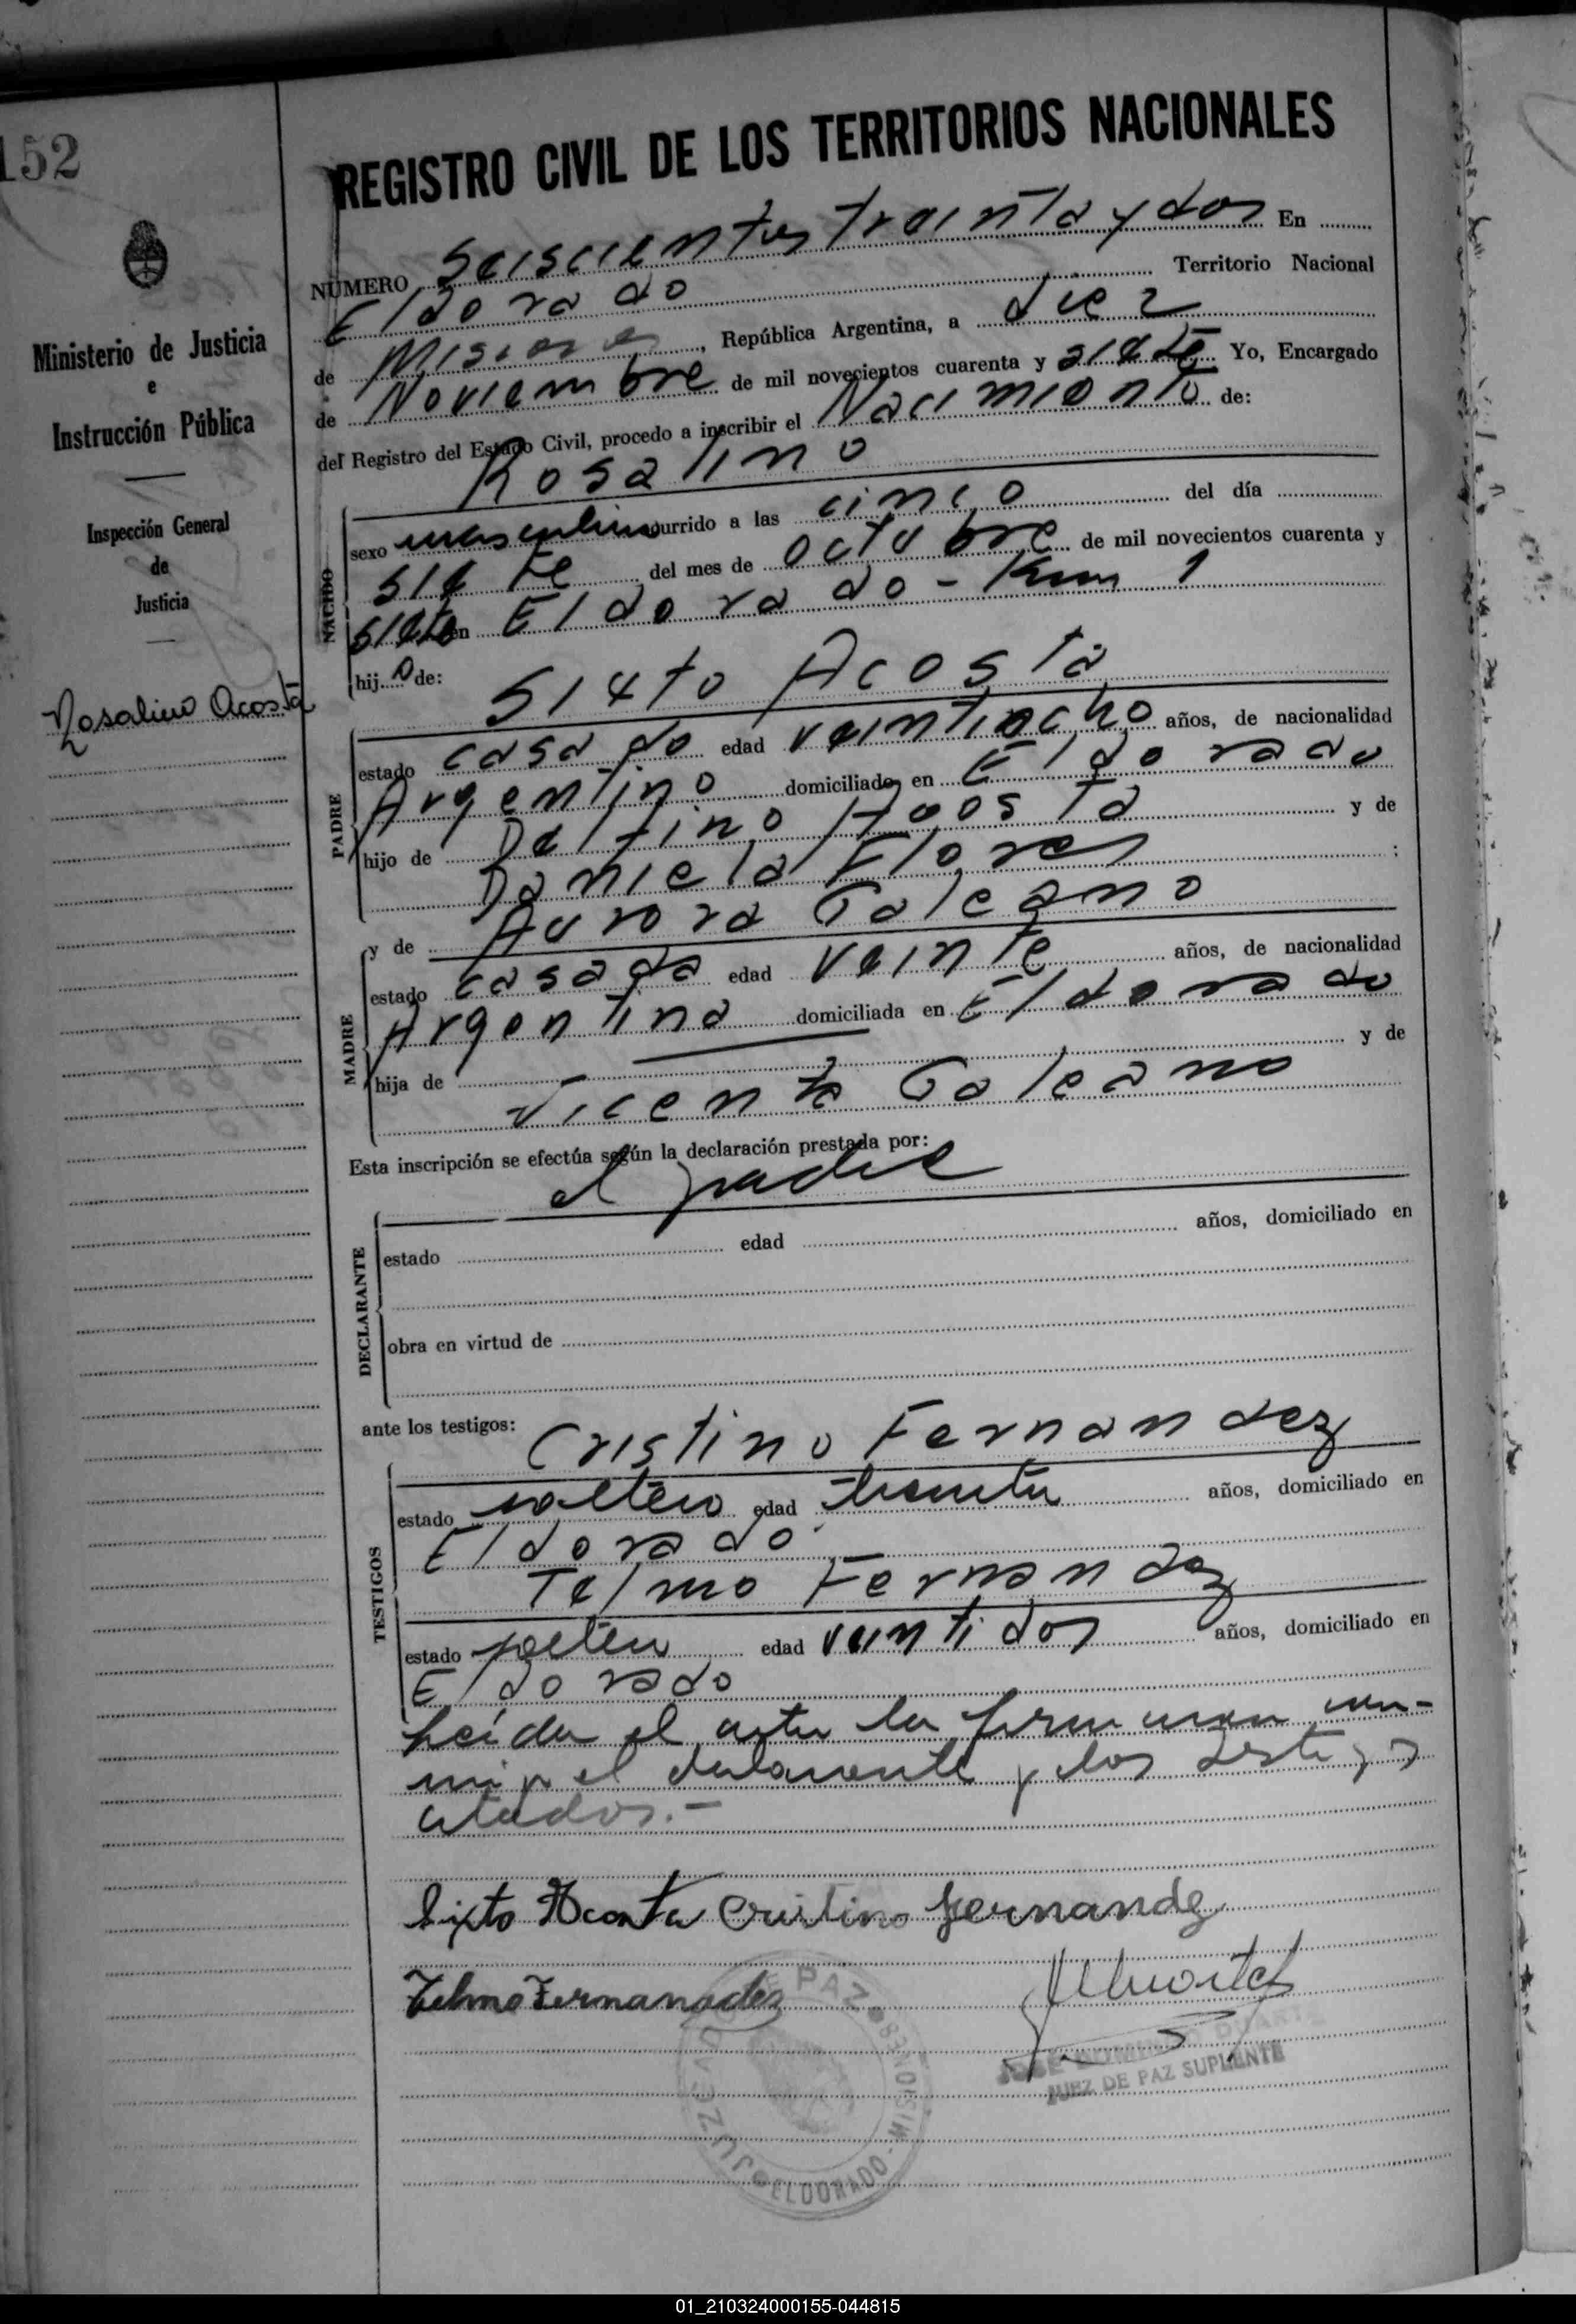 152
Ministerio de Justicia
e
Instrucción Pública
Inspección General
de
Justicia
Rosalino Acosta
REGISTRO CIVIL DE LOS TERRITORIOS NACIONALES
NÚMERO Seiscientos treinta y dos En
Eldorado Territorio Nacional
de Misiones, República Argentina, a diez
de Noviembre de mil novecientos cuarenta y siete Yo, Encargado
del Registro del Estado Civil, procedo a inscribir el Nacimiento de:
Rosalino
NACIDO
sexo masculino ocurrido a las cinco del día
siete del mes de octubre de mil novecientos cuarenta y
siete en Eldorado - Km 1
hijo de: Sixto Acosta
PADRE
estado casado edad veintiocho años, de nacionalidad
Argentino domiciliado en Eldorado
hijo de Delfino Acosta y de
Daniela Flores;
y de Aurora Galeano
MADRE
estado casada edad veinte años, de nacionalidad
Argentina domiciliada en Eldorado
hija de y de
Vicenta Galeano
Esta inscripción se efectúa según la declaración prestada por:
el padre
DECLARANTE
estado edad años, domiciliado en
obra en virtud de
ante los testigos: Cristino Fernandez
TESTIGOS
estado soltero edad treinta años, domiciliado en
Eldorado
Telmo Fernandez
estado soltero edad veintidos años, domiciliado en
Eldorado
Leída el acta la firman con-
migo el declarante y los testigos
citados.-
Sixto Acosta Cristino Fernandez
Telmo Fernanadez
JUZGADO DE PAZ
ELDORADO - MISIONES
JOSE DOMINGO DUARTE
JUEZ DE PAZ SUPLENTE
01_210324000155-044815